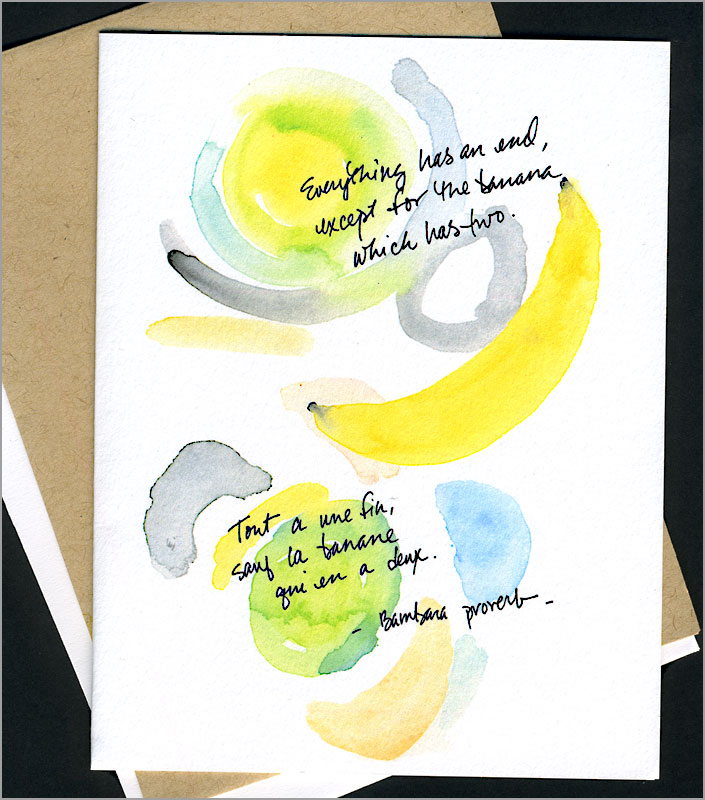 Everything has an end,
except for the banana
which has two.
Tout a une fin,
sauf la banane
qui en a deux.
- Bambara proverb -